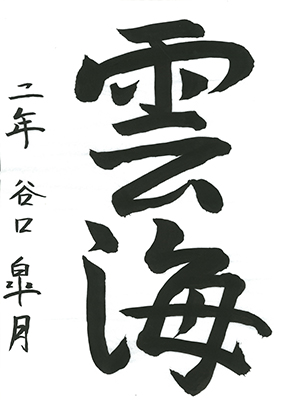 雲海
二年 谷口 皐月